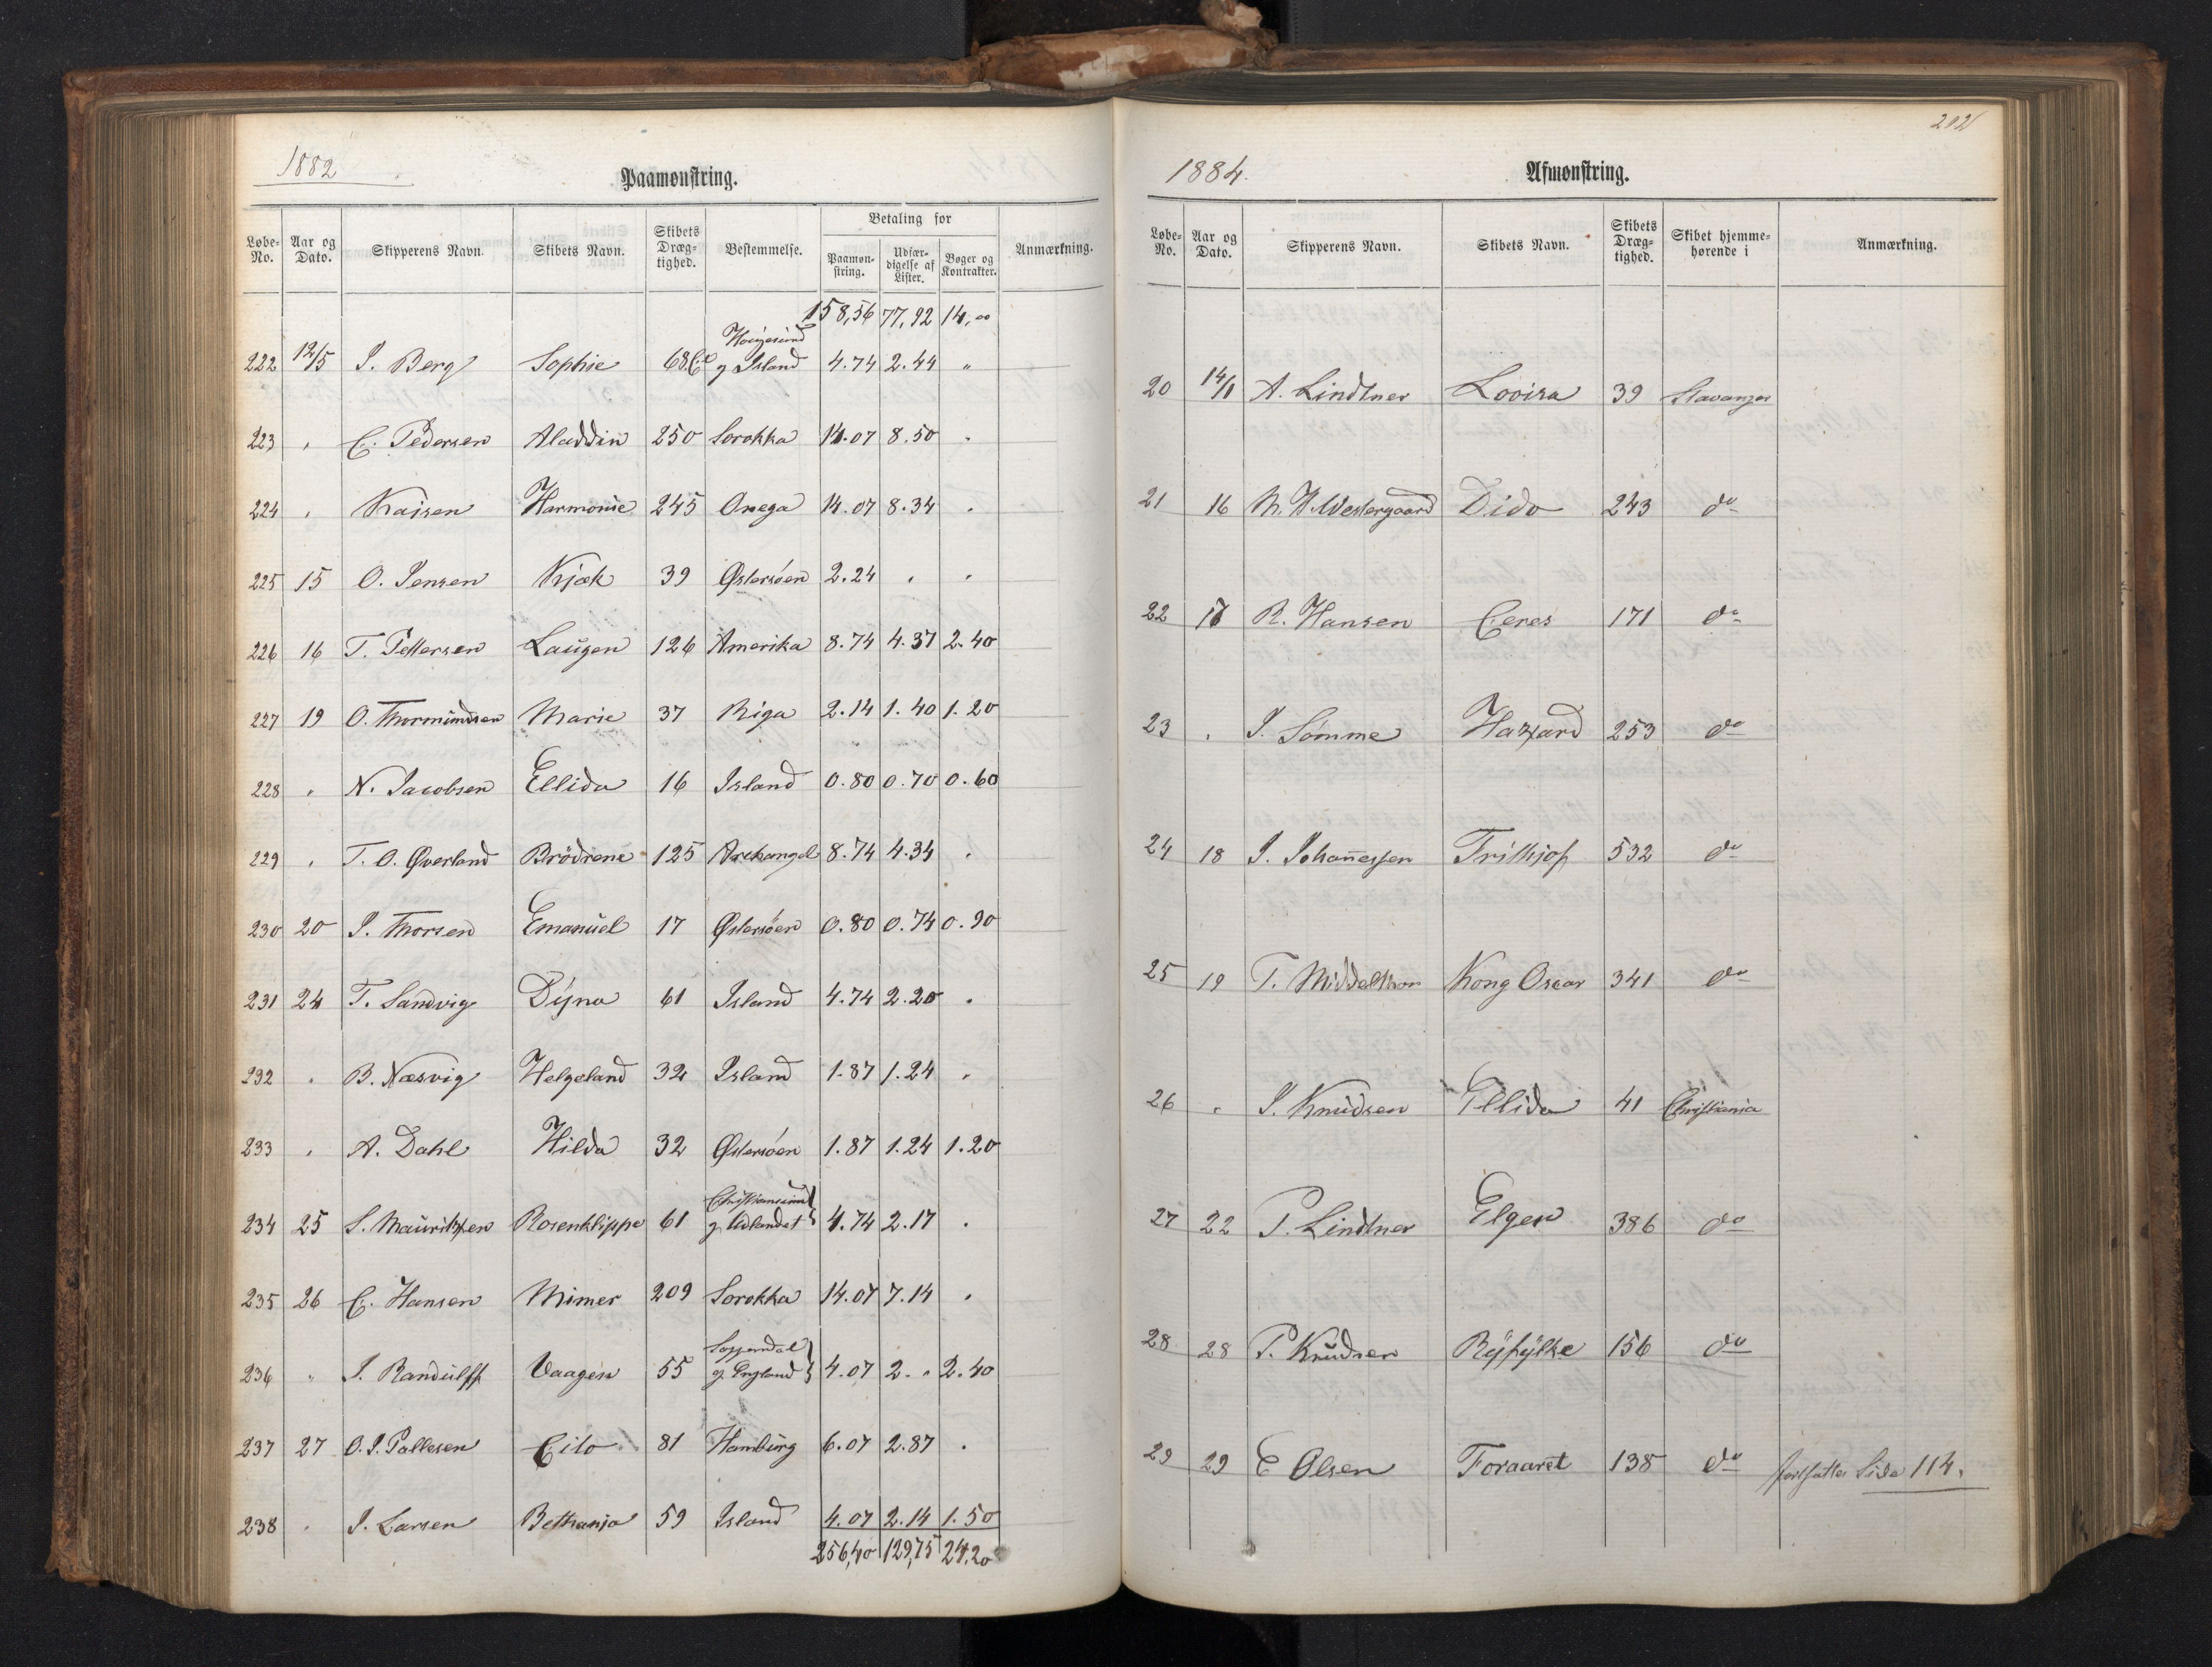 1882
Paamønstring.
Løbe-No. Aar og Dato. Skipperens Navn. Skibets Navn. Skibets Dræg-tighed. Bestemmelse. Betaling for Paamøn-string. Udfær-digelse af Lister. Bøger og Kontrakter. Anmærkning.
158,56 77,92 14,00
Haugesund
222 12/5 J. Berg Sophie 68 Cl g Island 4.74 2.44 "
223 " C. Pedersen Aladdin 250 Sorokka 14.07 8.50 "
224 " Kaisen Harmonie 245 Onega 14.07 8.34 "
225 15 O. Jensen Kjæk 39 Østersöen 2.24 " "
226 16 T. Pettersen Laugen 126 Amerika 8.74 4.37 2.40
227 19 O. Thormundsen Marie 37 Riga 2.14 1.40 1.20
228 " N. Jacobsen Ellida 16 Island 0.80 0.70 0.60
229 " T. O. Øverland Brödrene 125 Archangel 8.74 4.34 "
230 20 J. Thorsen Emanuel 17 Østersöen 0.80 0.74 0.90
231 24 T. Sandvig Dyna 61 Island 4.74 2.20 "
232 " B. Næsvig Helgeland 32 Island 1.87 1.24 "
233 " A. Dahl Hilda 32 Østersöen 1.87 1.24 1.20
Christiansund
234 25 S. Mauritzen Rosenklippe 61 g Udlandet 4.74 2.17 "
235 26 C. Hansen Mimer 209 Sorokka 14.07 7.14 "
Soggendal
236 " J. Randulff Vaagen 55 g England 4.07 2. " 2.40
237 27 O. J. Pallesen Cito 81 Hamburg 6.07 2.87 "
238 " J. Larsen Bethania 59 Island 4.07 2.14 1.50
256,40 129,75 24,20
202
1884.
Afmønstring.
Løbe-No. Aar og Dato. Skipperens Navn. Skibets Navn. Skibets Dræg-tighed. Skibet hjemme-hørende i Anmærkning.
20 14/1 A. Lindtner Lovisa 39 Stavanger
21 16 N. H. Westergaard Dido 243 do
22 17 R. Hansen Ceres 171 do
23 " J. Sömme Hazard 253 do
24 18 J. Johanessen Frithjof 532 do
25 19 T. Middelthon Kong Oscar 341 do
26 " J. Knudsen Ellida 41 Christiania
27 22 P. Lindtner Elgen 386 do
28 28 P. Knudsen Ryfylke 156 do
29 29 E Olsen Foraaret 138 do fortsættes Side 114.